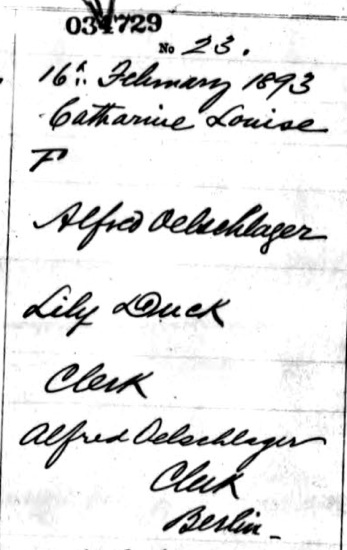 034729
No 23.
16th February 1893
Catharine Louise
F
Alfred Oelschlager
Lily Duck
Clerk
Alfred Oelschlager
Clerk
Berlin